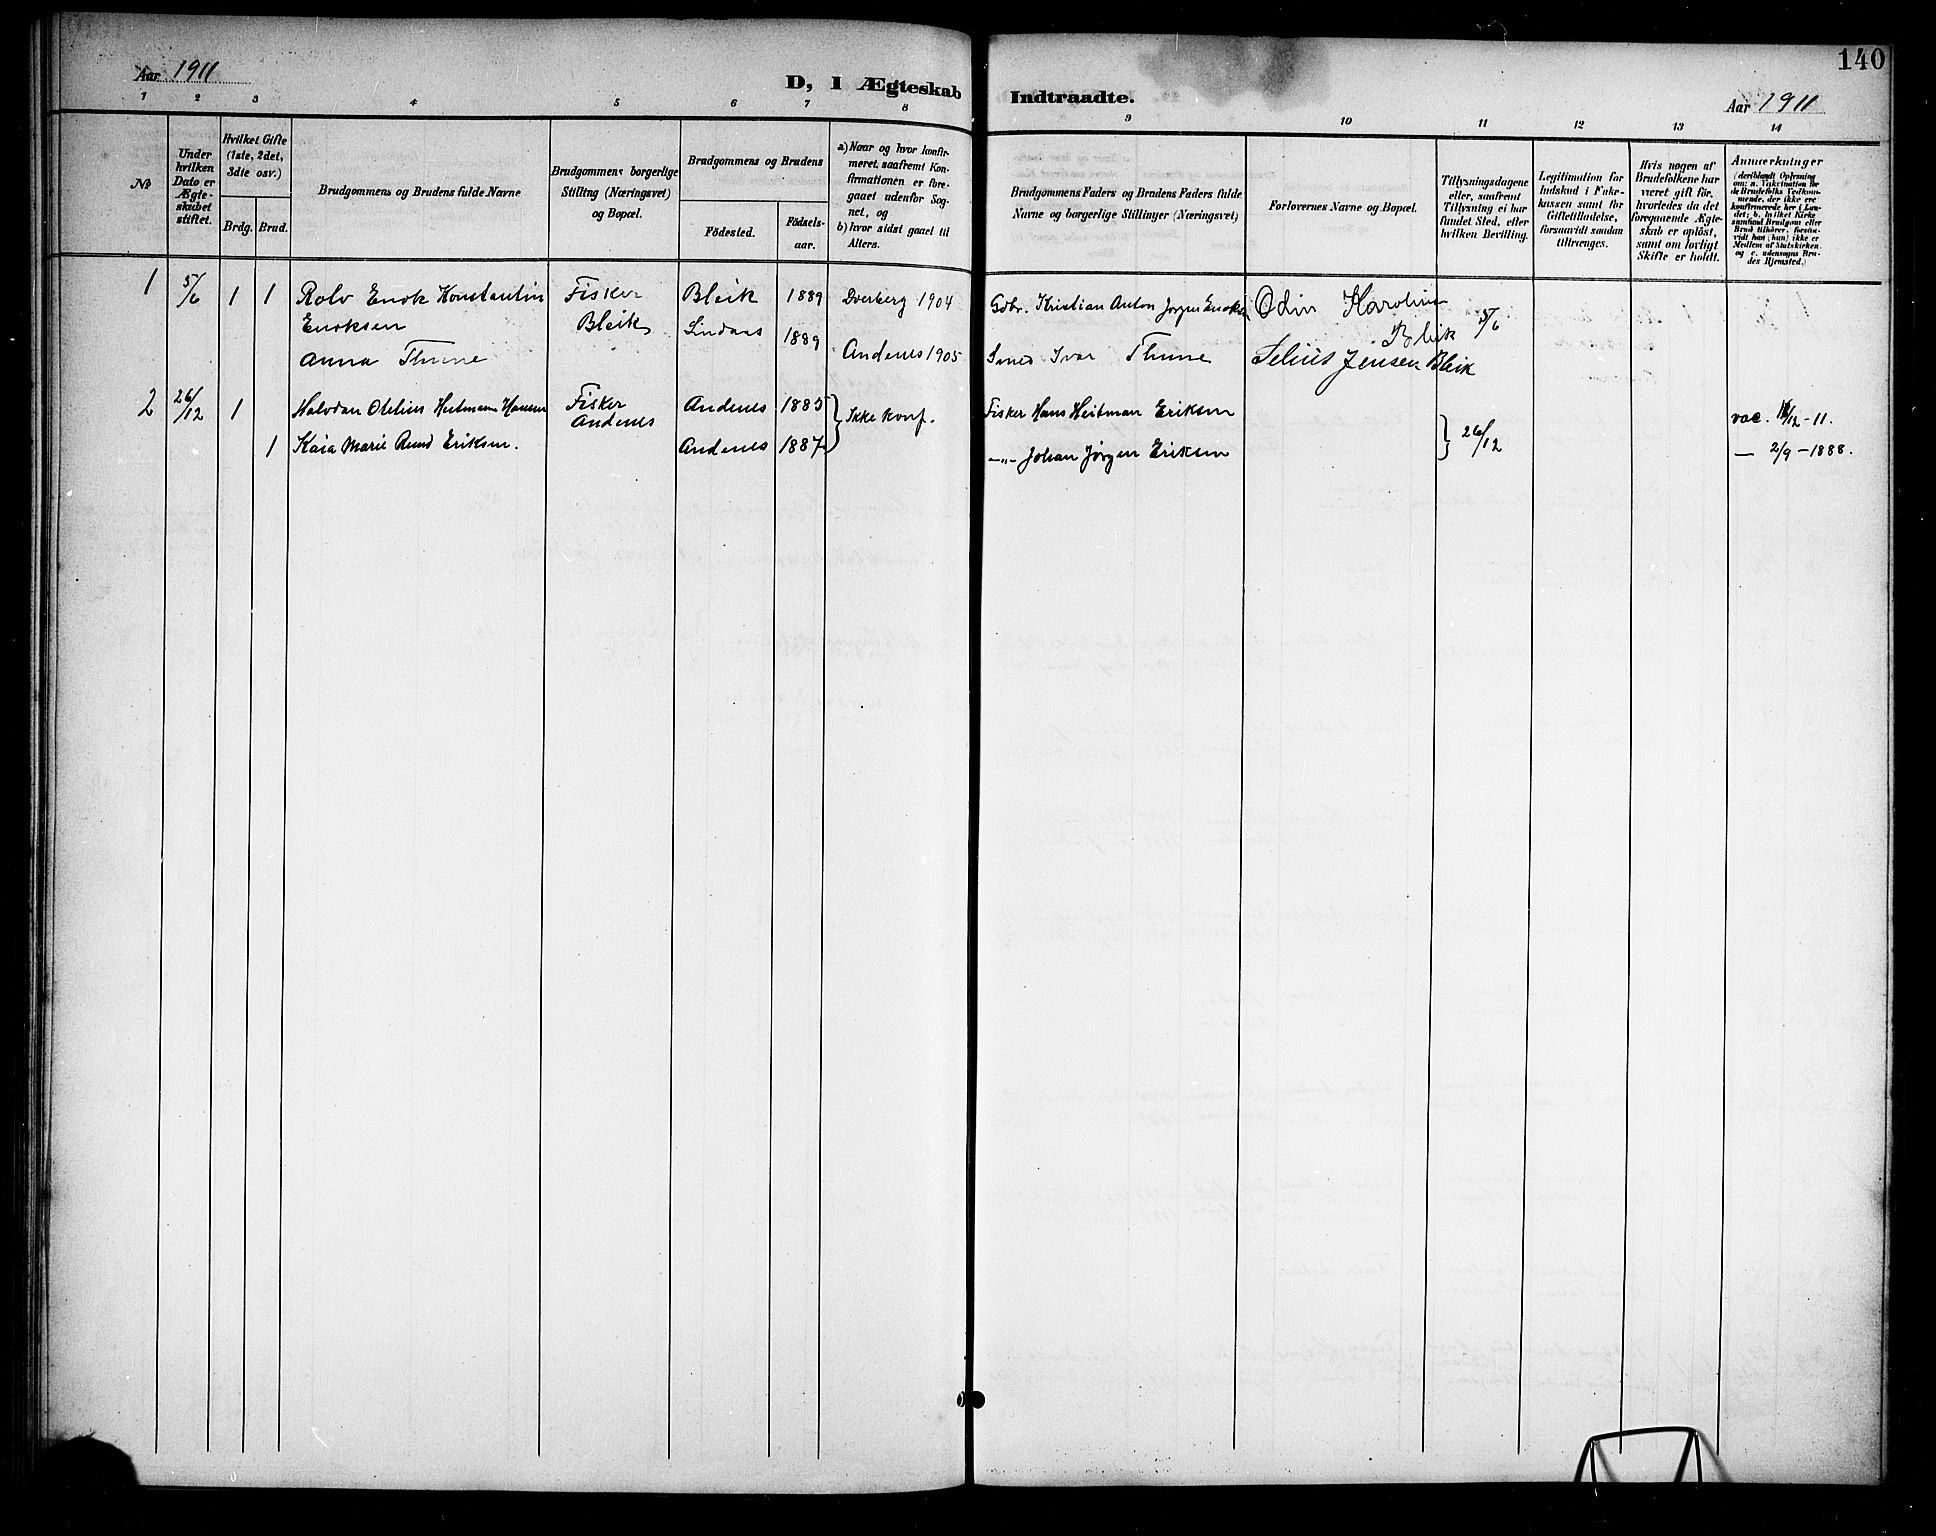 Aar 1911
D, I Ægteskab Indtraadte.
140
Aar 1911
1 2 3 4 5 6 7 8 9 10 11 12 13 14
No
Under
hvilken
Dato er
Ægte-
skabet
stiftet.
Hvilket Gifte
(1ste, 2det,
3dte osv.)
Brdg. Brud.
Brudgommens og Brudens fulde Navne
Brudgommens borgerlige
Stilling (Næringsvei)
og Bopæl.
Brudgommens og Brudens
Födested.
Födsels-
aar.
a) Naar og hvor konfir-
meret, saafremt Kon-
firmationen er fore-
gaaet udenfor Sog-
net, og
b) hvor sidst gaaet til
Alters.
Brudgommens Faders og Brudens Faders fulde
Navne og borgerlige Stillinger (Næringsvei)
Forlovernes Navne og Bopæl.
Tillysningsdagene
eller, saafremt
Tillysning ei har
fundet Sted, efter
hvilken Bevilling.
Legitimation for
Indskud i Enke-
kassen samt for
Giftetilladelse,
forsaavidt saadan
tiltrænges.
Hvis nogen af
Brudefolkene har
været gift för,
hvorledes da det
foregaaende Ægte-
skab er oplöst,
samt om lovligt
Skifte er holdt.
Anmærkninger
(deriblandt Oplysning
om: a. Vaccination for
de Brudefolks Vedkom-
mende, der ikke ere
konfirmerede her i Lan-
det; b. hvilket Kirke-
samfund Brudgom eller
Brud tilhörer, forsaa-
vidt han (hun) ikke er
Medlem af Statskirken,
og c. udensogns Bru-
des Hjemsted.)
1 5/6 1 1 Rolv Enok Konstantin Fisker Bleik 1889 Dverberg 1904 Gdbr. Kristian Anton Jørgen Enoksen Odin Karolius
Enoksen Bleik Lindaas 1889 Bleik 5/6
Anna Thune Andenes 1905 Smed Ivar Thune Selius Jensen Bleik
2 26/12 1 Halvdan Otelius Heitmann Hansen Fisker Andenes 1885 Ikke konf. Fisker Hans Heitman Eriksen vac. /12-11.
Andenes 26/12
1 Kaia Marie Rund Eriksen. Andenes 1887 —"— Johan Jørgen Eriksen — 2/9 - 1888.